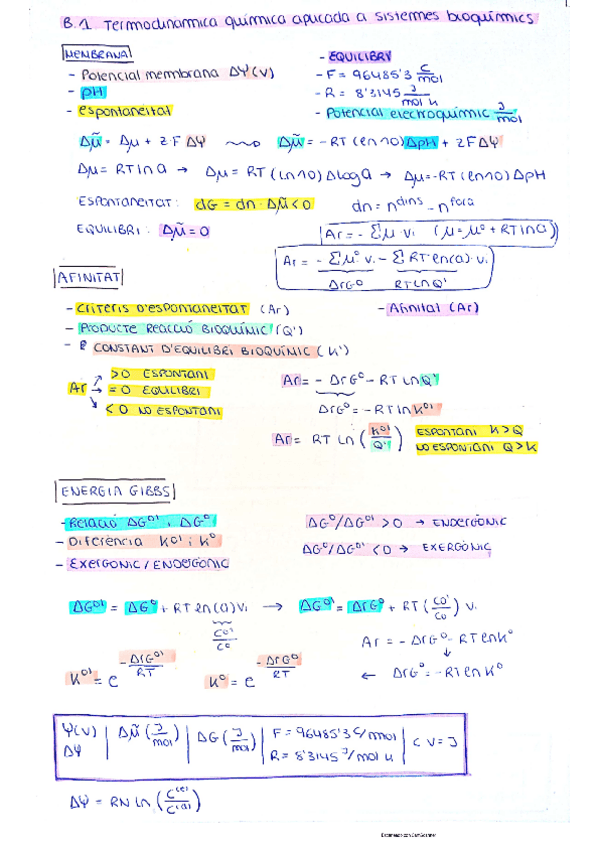 B.1 Termodinàmica química aplicada a sistemes bioquímics
MEMBRANA
- Potencial membrana ΔΨ (V)
- pH
- espontaneïtat
- EQUILIBRI
- F = 96485'3 C/mol
- R = 8'3145 J/mol K
- Potencial electroquímic J/mol
Δμ̃ = Δμ + z·F ΔΨ ⟿ Δμ̃ = -RT (ln10) ΔpH + zFΔΨ
Δμ = RT ln a → Δμ = RT (ln10) Δlog a → Δμ = -RT (ln10) ΔpH
ESPONTANEÏTAT: dG = dn · Δμ̃ < 0 dn = n^dins - n^fora
EQUILIBRI: Δμ̃ = 0
Ar = - Σμ·νi (μ = μ° + RT ln a)
Ar = - Σμ°·νi - ΣRT·ln(a)·νi
ΔrG° RT ln Q'
AFINITAT
- Criteris d'espontaneïtat (Ar)
- Producte reacció bioquímic (Q')
- CONSTANT D'EQUILIBRI BIOQUÍMIC (K')
- Afinitat (Ar)
Ar
> 0 ESPONTANI
= 0 EQUILIBRI
< 0 NO ESPONTANI
Ar = - ΔrG° - RT ln Q'
ΔrG° = -RT ln K°'
Ar = RT ln (K°'/Q')
ESPONTANI K > Q
NO ESPONTANI Q > K
ENERGIA GIBBS
- Relació ΔG°' i ΔG°
- Diferència K°' i K°
- Exergònic / Endergònic
ΔG°/ΔG°' > 0 → ENDERGÒNIC
ΔG°/ΔG°' < 0 → EXERGÒNIC
ΔG°' = ΔG° + RT ln(a) νi → ΔG°' = ΔrG° + RT (C°'/C°) νi
C°'/C°
Ar = - ΔrG° - RT ln K°
K°' = e^(-ΔrG°'/RT) K° = e^(-ΔrG°/RT) ← ΔrG° = -RT ln K°
Ψ(V) ΔΨ | Δμ̃ (J/mol) | ΔG (J/mol) | F = 96485'3 C/mol R = 8'3145 J/mol K | C V = J
ΔΨ = RN ln (C^(e)/C^(a))
Escaneado con CamScanner